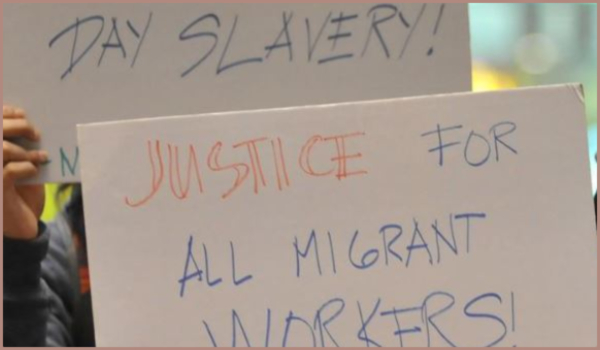 DAY SLAVERY!
N
JUSTICE FOR
ALL MIGRANT
WORKERS!